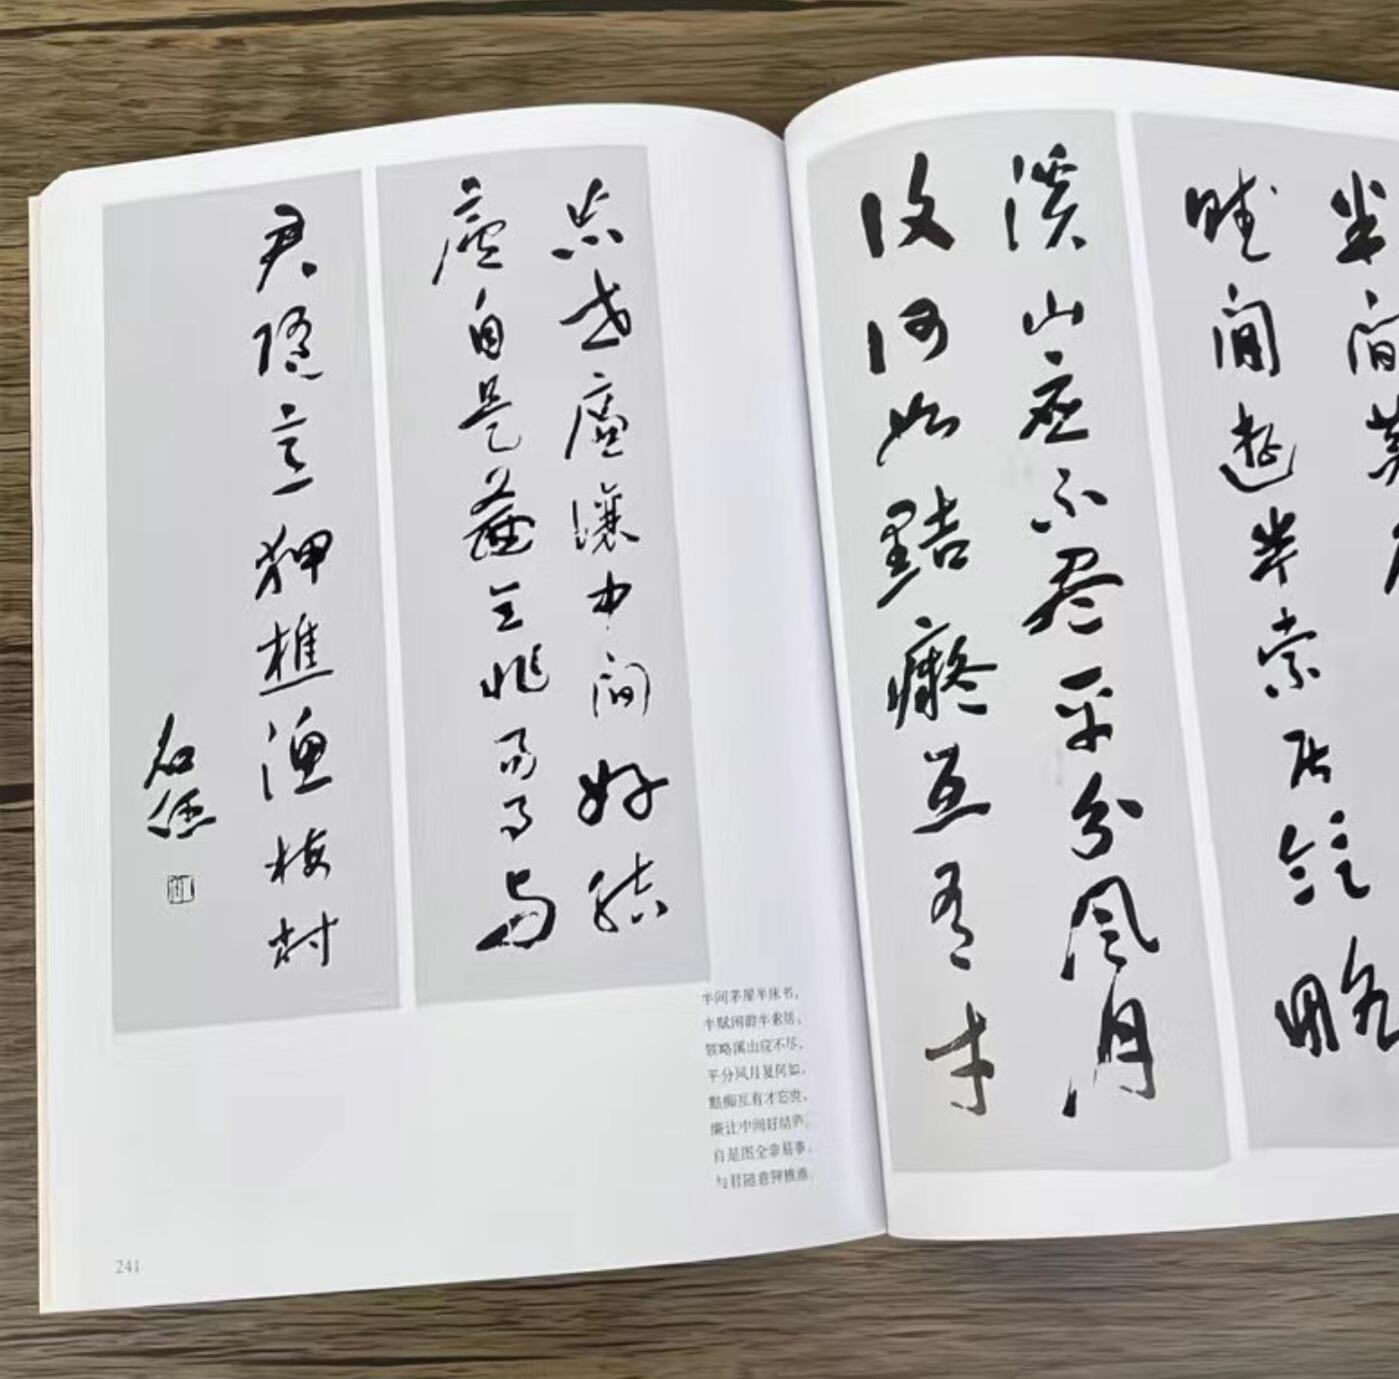 半间
畦间趣半索居领略
溪山应不尽平分风月
復何如黠癡互有才
忘世廉讓中间好結
廬自是
易事与
君隨意狎樵漁梅村
半间茅屋半床书,
半赋闲游半索居,
领略溪山应不尽,
平分风月复何如,
黠痴互有才忘世,
廉让中间好结庐,
自是图全非易事,
与君随意狎樵渔。
241